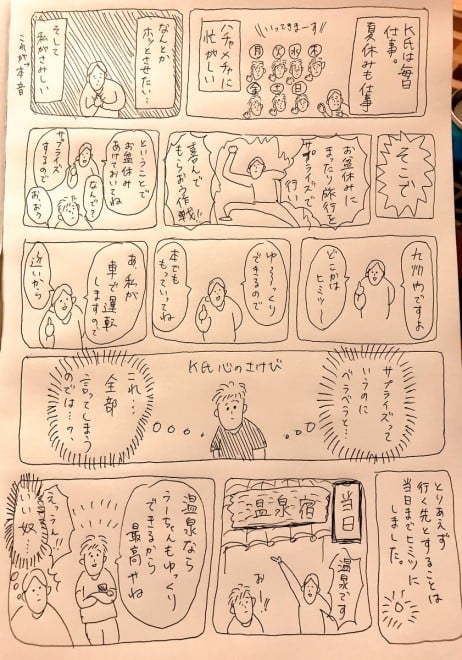 K氏は毎日
仕事。
夏休みも仕事
いってきまーす
木
水
火
月
日
土
金
ハチャメチャに
忙がしい
なんとか
ホッとさせたい…
そして
私がさみしい
これが本音
そこで
お盆休みに
まったり旅行を
サプライズで
行い
喜んで
もらおう作戦!!
ということで
お盆休み
あけておいてね
なんで?
サプライズ
するので
おおう
九州内ですよ
どこかは
ヒミツ〜
ゆ〜っくり
できるので
本でも
もっていってね
あ、私が
車で運転
しますので
近いから
K氏心のさけび
サプライズって
いうのに
ベラベラと…
これ…
全部
言ってしまう
のでは…?
とりあえず
行く先とすることは
当日までヒミツに
しました。
当日
温泉宿
温泉です
お!!
温泉なら
うーちゃんもゆっくり
できるから
最高やね
えっうう!!
いい奴…